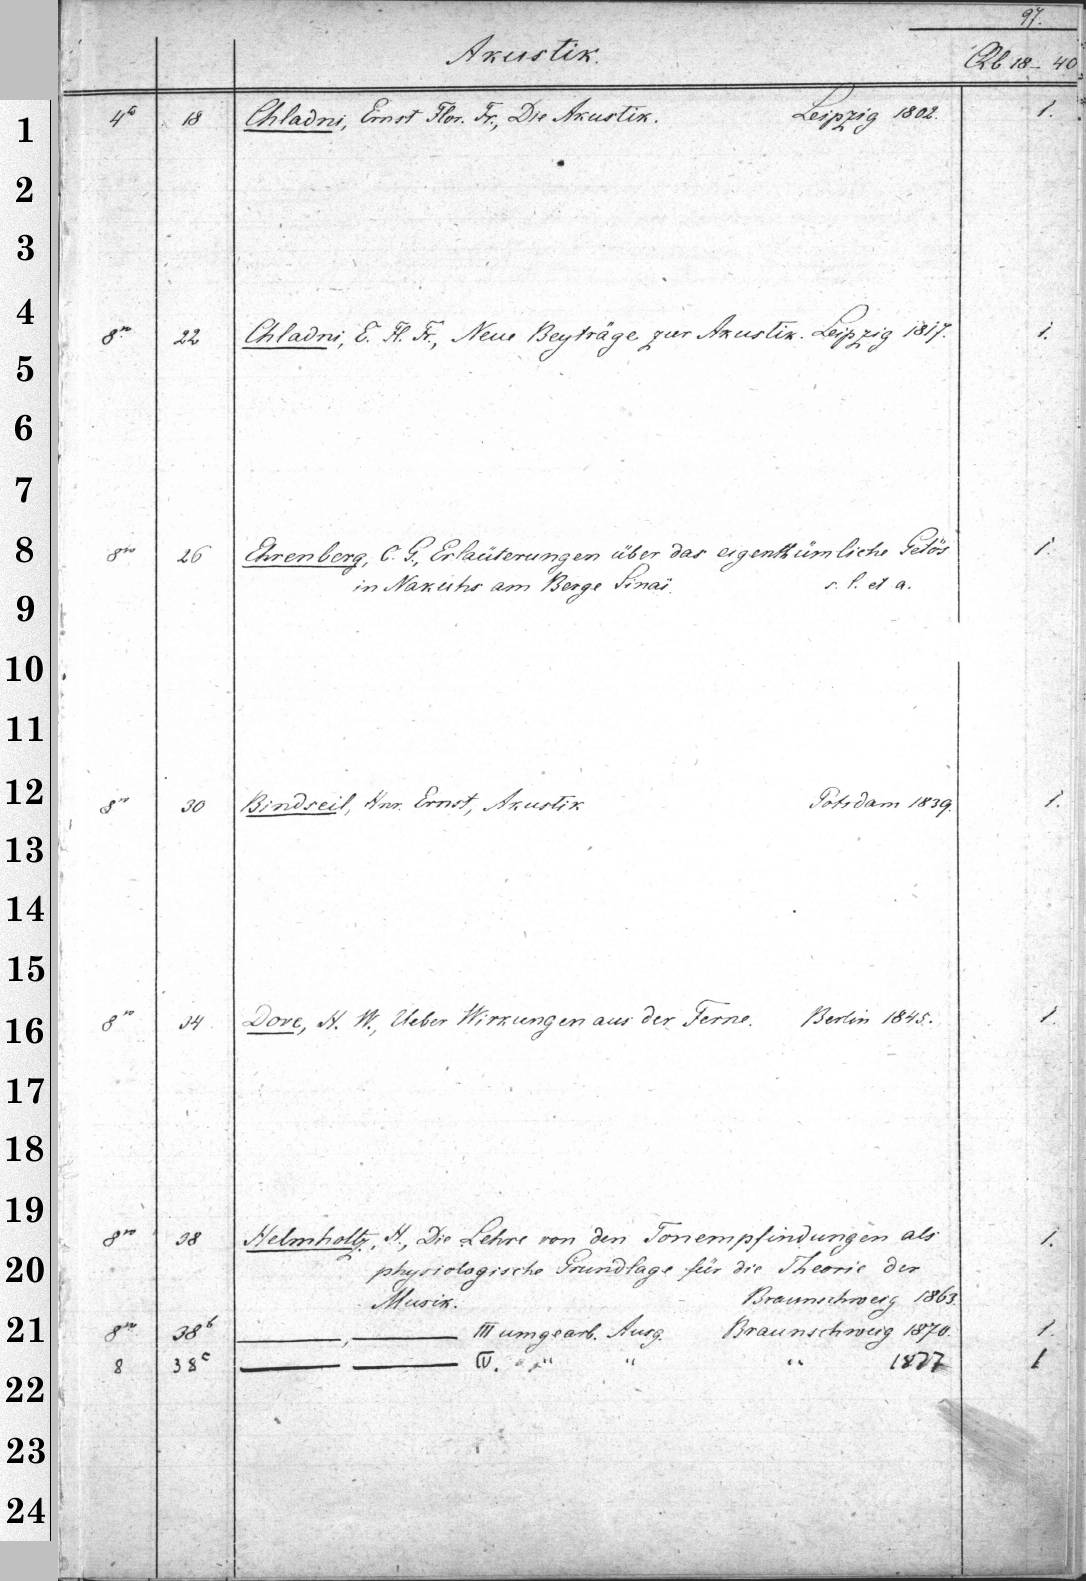 97.
Akustik. Qb 18-40.
1
4o 18 Chladni, Ernst Flor. Fr., Die Akustik. Leipzig 1802. 1.
2
3
4
8vo 22 Chladni, E. Fl. Fr., Neue Beyträge zur Akustik. Leipzig 1817. 1.
5
6
7
8
8vo 26 Ehrenberg, C. G., Erläuterungen über das eigenthümliche Getös 1.
in Nakuhs am Berge Sinai. s. l. et a.
9
10
11
12
8vo 30 Bindseil, Hnr. Ernst, Akustik Potsdam 1839. 1.
13
14
15
16
8vo 34 Dove, H. W., Ueber Wirkungen aus der Ferne. Berlin 1845. 1.
17
18
19
8vo 38 Helmholtz, H., Die Lehre von den Tonempfindungen als 1.
20
physiologische Grundlage für die Theorie der
Musik. Braunschweig 1863.
21
8vo 38b ———, ——— III umgearb. Ausg. Braunschweig 1870. 1.
8 38c ——— ——— IV. " " " 1877 1
22
23
24